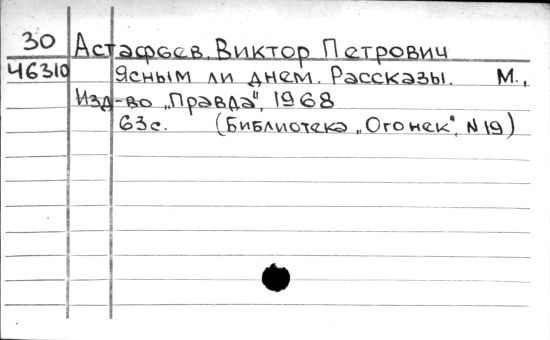 30 Астафьев, Виктор Петрович
46310 Ясным ли днем. Рассказы. М.,
Изд-во „Правда", 1968
63с. (Библиотека „Огонек", N 19)